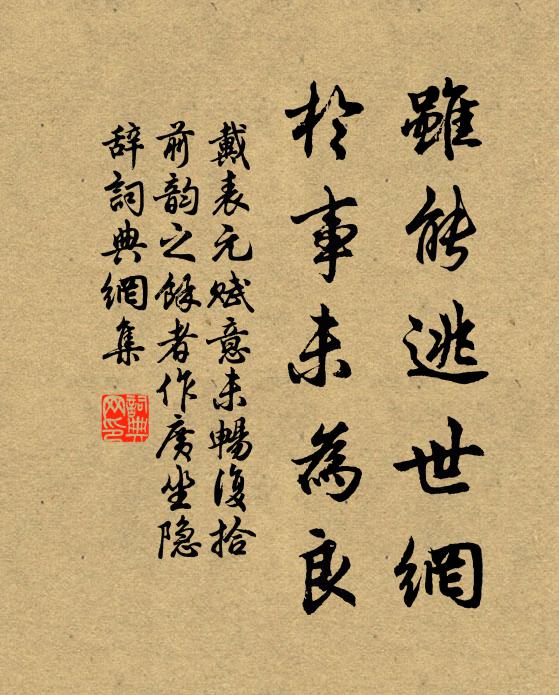 雖能逃世網
於事未為良
戴表元賦意未暢復拾
前韵之餘者作廣坐隐
辞詞典網集
詞典
网印